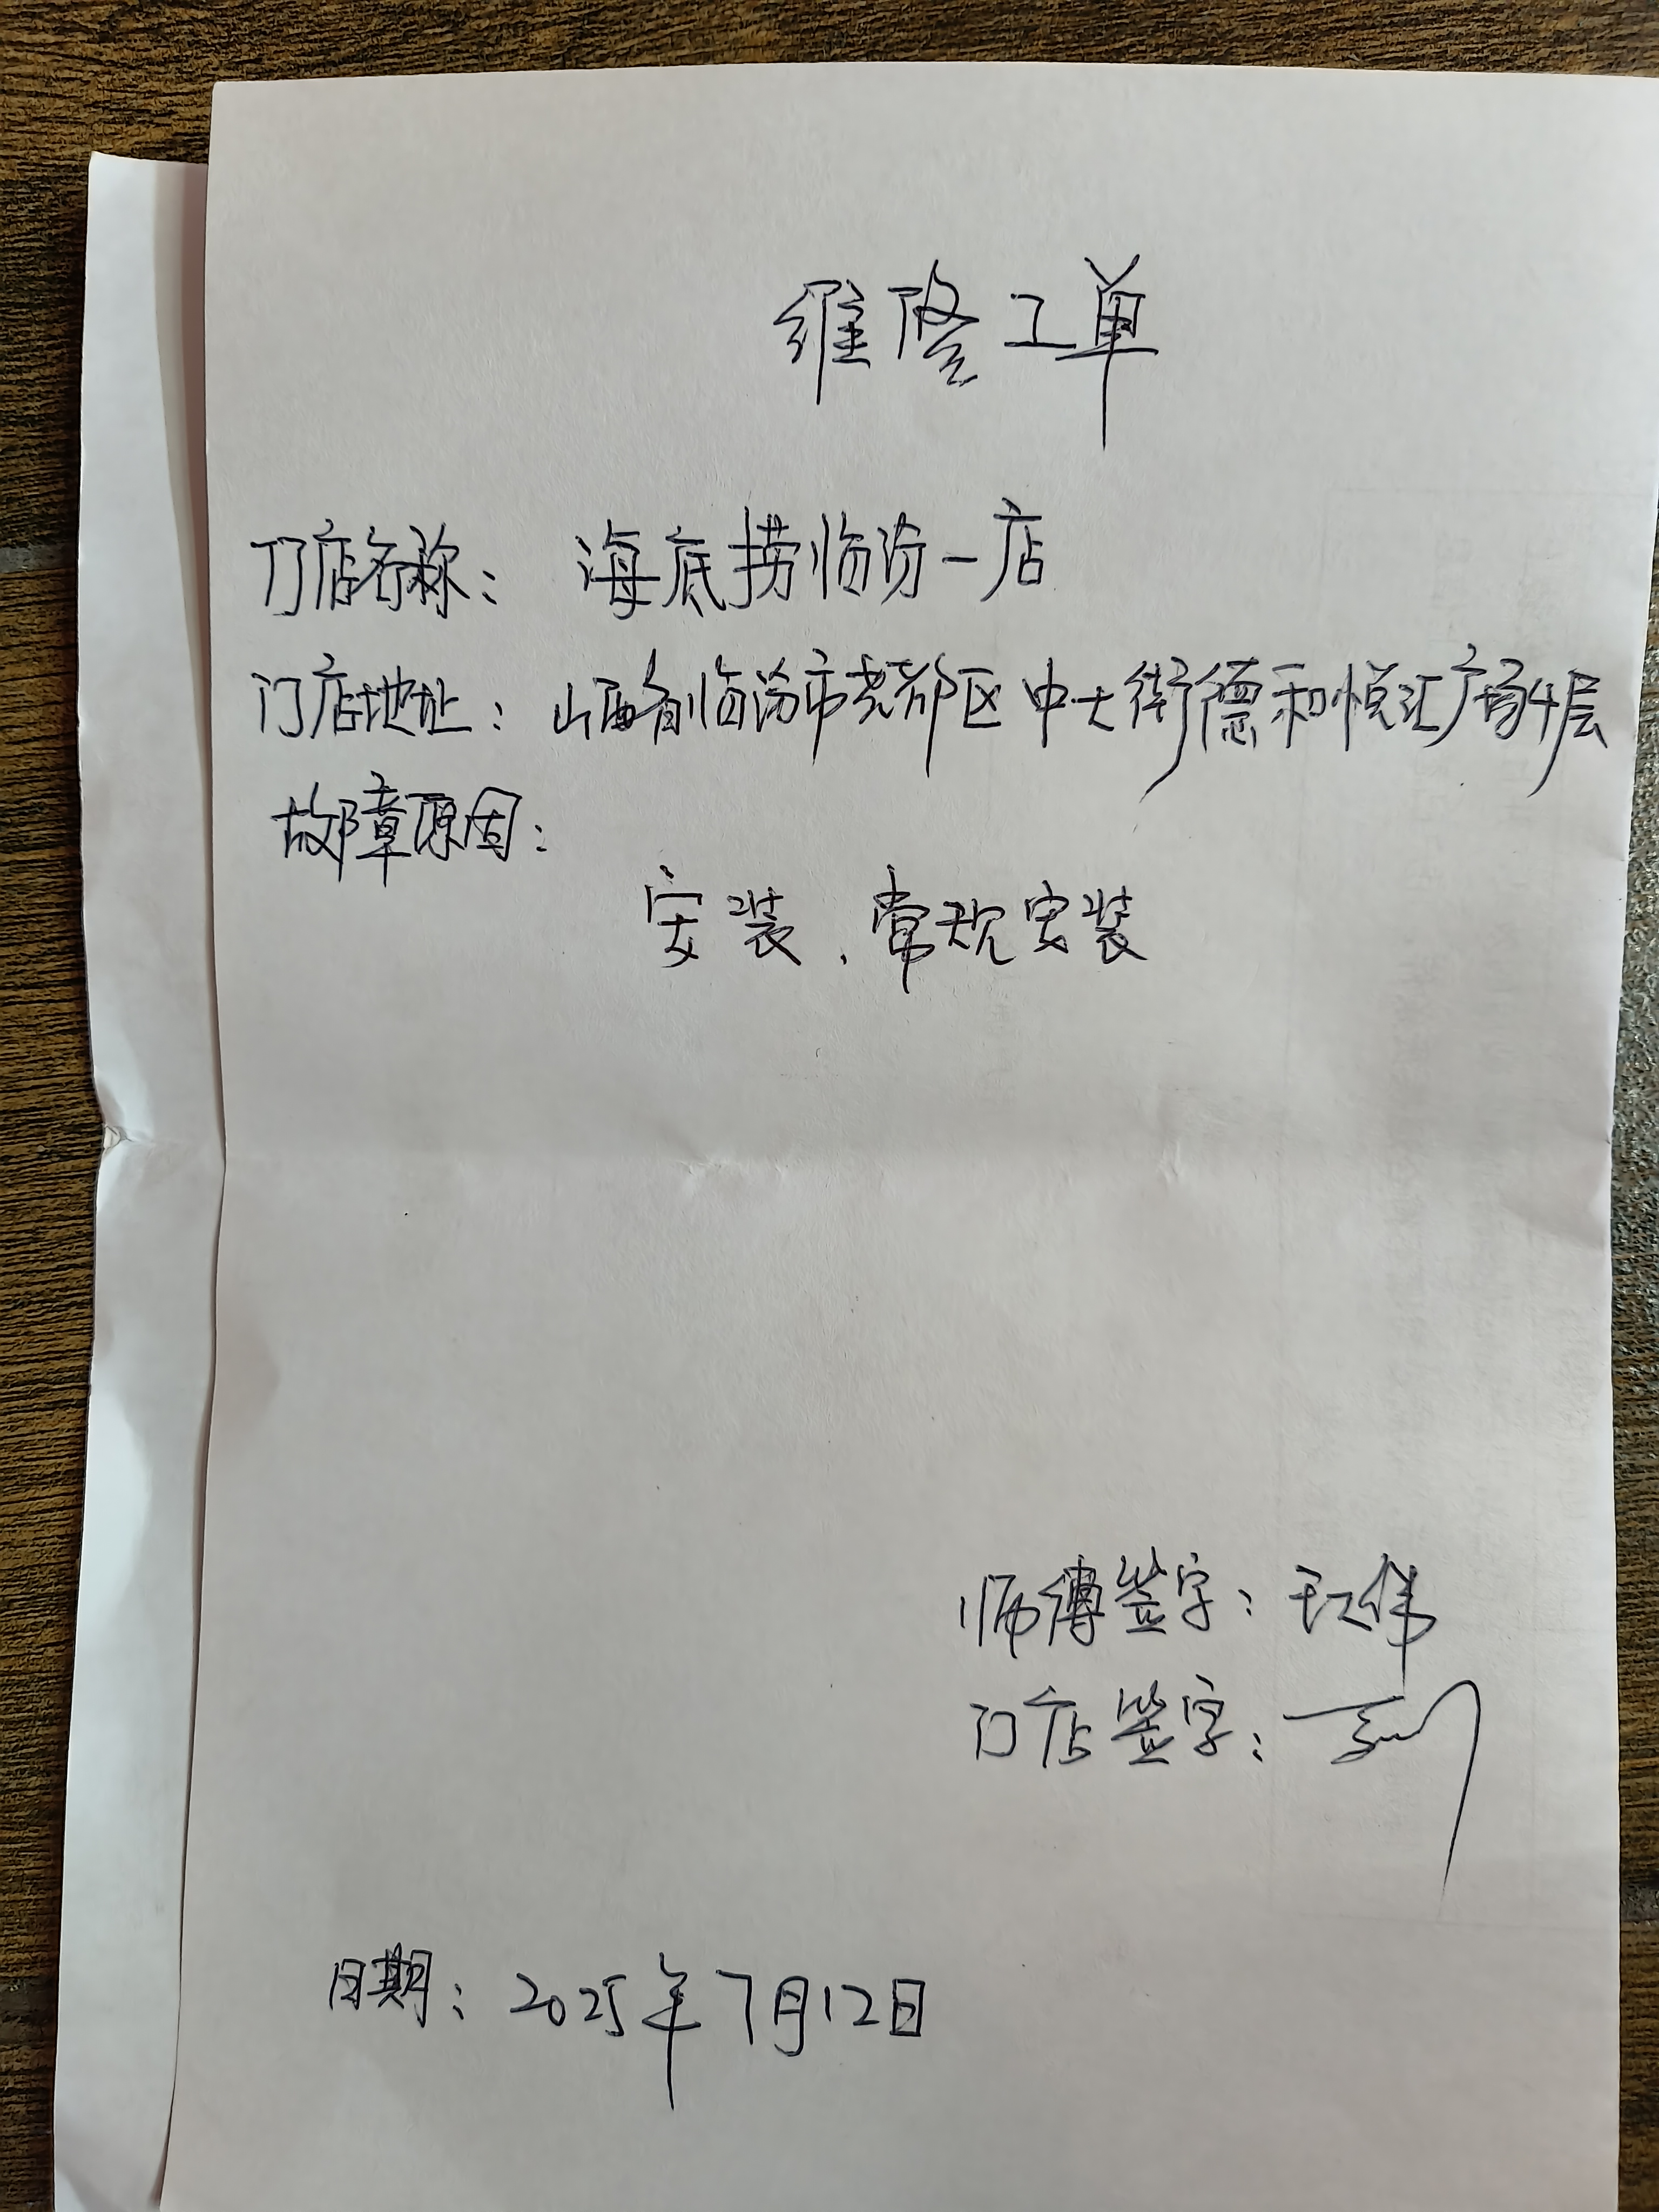 维修工单
门店名称： 海底捞临汾一店
门店地址：山西省临汾市尧都区中大街德和悦汇广场4层
故障原因：
安装、常规安装
师傅签字：王伟
门店签字：
日期：2025年7月12日